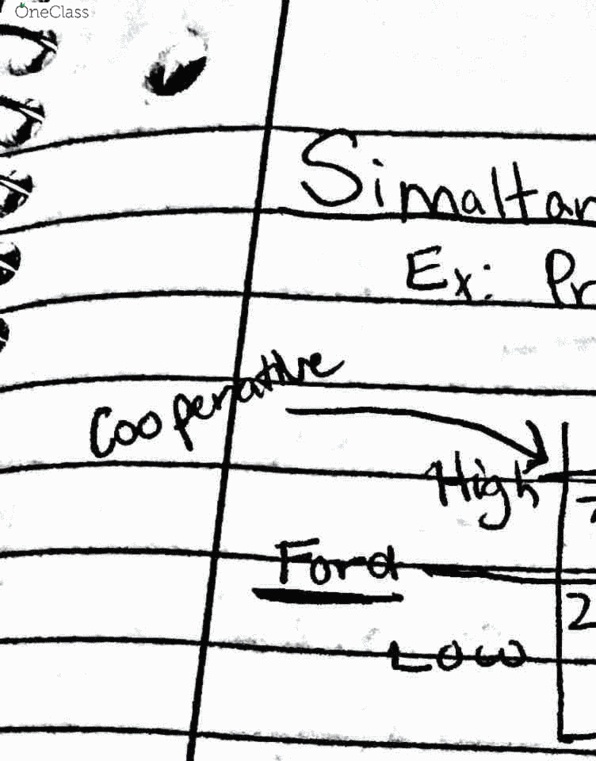 OneClass
Simaltan
Ex: Pr
Cooperative
High
Ford
2
Low